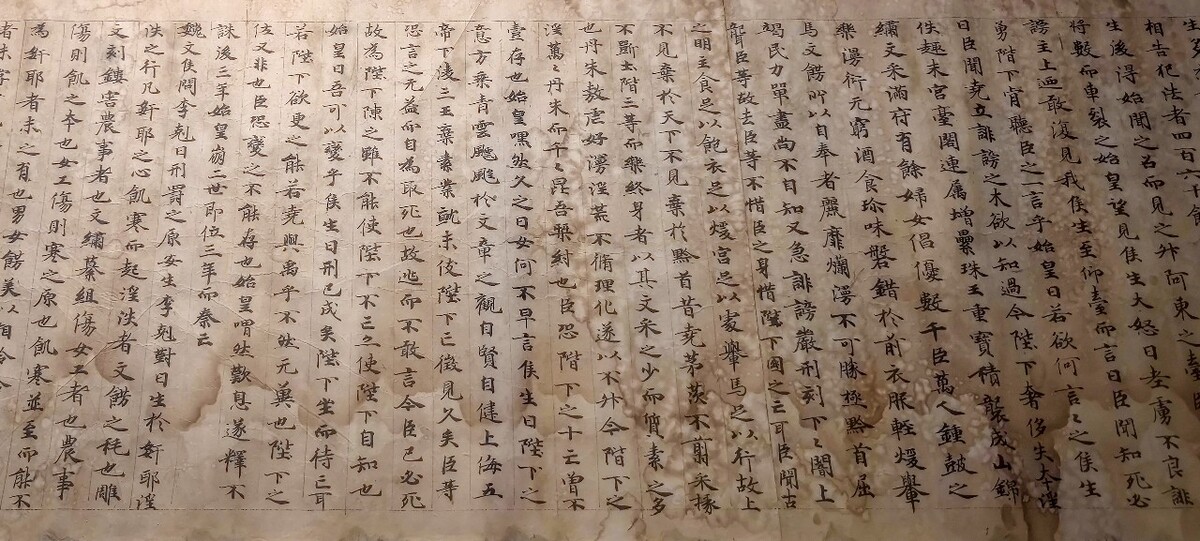 相告犯法者四百六
生後得始聞之召而見之升阿東之臺
將數而車裂之始皇望見侯生大怒曰老虜不良誹
謗主上迺敢復見我侯生至仰臺而言曰臣聞知死必
勇陛下肯聽臣之一言乎始皇曰若欲何言々之侯生
曰臣聞堯立誹謗之木欲以知過今陛下奢侈失本淫
佚趣末宮臺閣連屬增壘珠玉重寶積襲成山錦
繡文采滿府有餘婦女倡優數千臣萬人鍾鼓之
樂漫衍无窮酒食珎味磐錯於前衣服輕煖轝
馬文餝所以自奉者麗靡爛漫不可勝極黔首屈
竭民力單盡尚不自知又急誹謗嚴刑刻下々闇上
聾臣等故去臣等不惜臣之身惜陛下國之亡耳臣聞古
之明主食足以飽衣足以煖宮足以處轝馬足以行故上
不見棄於天下不見棄於黔首昔堯茅茨不剪采椽
不斲土階三等而樂終身者以其文采之少而質素之多
也丹朱敖虐好湯淫荒不脩理化遂以不升今陛下之
淫萬々丹朱而千々昆吾桀紂也臣恐陛下之十亡曾不
壹存也始皇嘿然久之曰女何不早言侯生曰陛下之
意方乘青雲飈飈於文章之觀自賢自健上侮五
帝下淩三王棄素業就末伎陛下亡徵見久矣臣等
恐言之无益而自為取死也故逃而不敢言今臣已必死
故為陛下陳之雖不能使陛下不亡欲使陛下自知也
始皇曰吾可以變乎侯生曰刑已成矣陛下坐而待亡耳
若陛下欲更之能若堯與禹乎不然无冀也陛下之
佐又非也臣恐變之不能存也始皇喟然歎息遂釋不
誅後三年始皇崩二世即位三年而秦亡
魏文侯問李剋曰刑罰之原安生李剋對曰生於奸耶淫
泆之行凡奸耶之心飢寒而起淫泆者文餝之秏也雕
文刻鏤害農事者也文繡纂組傷女工者也農事
傷則飢之本也女工傷則寒之原也飢寒並至而能不
為奸耶者未之有也男女餝美以相